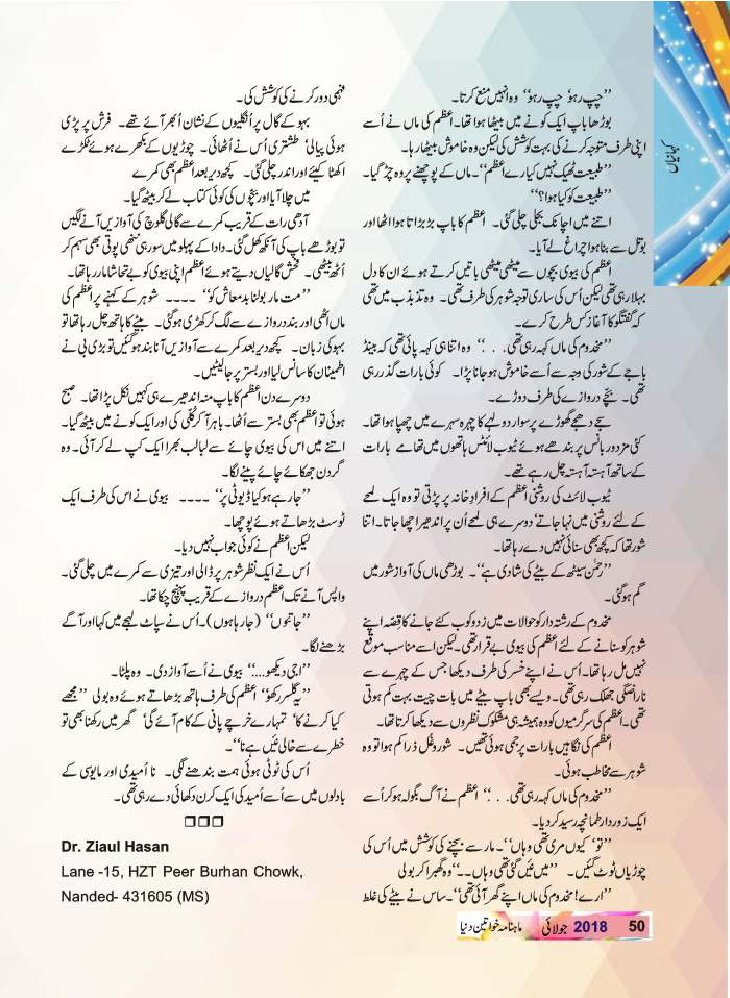 ’’چپ رہو‘ چپ رہو‘‘ وہ انہیں منع کرتا۔
بوڑھا باپ ایک کونے میں بیٹھا ہوا تھا۔ اعظم کی ماں نے اُسے
اپنی طرف متوجہ کرنے کی بہت کوشش کی لیکن وہ خاموش بیٹھا رہا۔
’’طبیعت ٹھیک نہیں کیا رے اعظم‘‘۔ ماں کے پوچھنے پر وہ چڑ گیا۔
’’طبیعت کو کیا ہوا؟‘‘
اتنے میں اچانک بجلی چلی گئی۔ اعظم کا باپ بڑبڑاتا ہوا اٹھا اور
بوتل سے بنا ہوا چراغ لے آیا۔
اعظم کی بیوی بچوں سے میٹھی میٹھی باتیں کرتے ہوئے ان کا دل
بہلا رہی تھی لیکن اُس کی ساری توجہ شوہر کی طرف تھی۔ وہ تذبذب میں تھی
کہ گفتگو کا آغاز کس طرح کرے۔
’’مخدوم کی ماں کہہ رہی تھی۔ . .‘‘ وہ اتنا ہی کہہ پائی تھی کہ بینڈ
باجے کے شور کی وجہ سے اُسے خاموش ہو جانا پڑا۔ کوئی بارات گذر رہی
تھی۔ بچے دروازے کی طرف دوڑے۔
سجے دھجے گھوڑے پر سوار دولہے کا چہرہ سہرے میں چھپا ہوا تھا۔
کئی مزدور بانس پر بندھے ہوئے ٹیوب لائٹس ہاتھوں میں تھامے بارات
کے ساتھ آہستہ آہستہ چل رہے تھے۔
ٹیوب لائٹ کی روشنی اعظم کے افراد خانہ پر پڑتی تو وہ ایک لمحے
کے لئے روشنی میں نہا جاتے‘ دوسرے ہی لمحے اُن پر اندھیرا چھا جاتا۔ اتنا
شور تھا کہ کچھ بھی سنائی نہیں دے رہا تھا۔
’’رحمٰن سیٹھ کے بیٹے کی شادی ہے‘‘۔ بوڑھی ماں کی آواز شور میں
گم ہو گئی۔
مخدوم کے رشتہ دار کو حوالات میں زدوکوب کئے جانے کا قصہ اپنے
شوہر کو سنانے کے لئے اعظم کی بیوی بے قرار تھی۔ لیکن اسے مناسب موقع
نہیں مل رہا تھا۔ اُس نے اپنے خسر کی طرف دیکھا جس کے چہرے سے
ناراضگی جھلک رہی تھی۔ ویسے بھی باپ بیٹے میں بات چیت بہت کم ہوتی
تھی۔ اعظم کی سرگرمیوں کو وہ ہمیشہ ہی مشکوک نظروں سے دیکھا کرتا تھا۔
اعظم کی نگاہیں بارات پر جمی ہوئی تھیں۔ شور و غل ذرا کم ہوا تو وہ
شوہر سے مخاطب ہوئی۔
’’مخدوم کی ماں کہہ رہی تھی۔ . .‘‘ اعظم نے آگ بگولہ ہو کر اُسے
ایک زوردار طمانچہ رسید کر دیا۔
’’تو‘ کیوں مری تھی وہاں‘‘۔ مار سے بچنے کی کوشش میں اُس کی
چوڑیاں ٹوٹ گئیں۔ ’’میں نئیں گئی تھی وہاں۔۔‘‘ وہ گھبرا کر بولی
’’ارے! مخدوم کی ماں اپنے گھر آئی تھی‘‘۔ ساس نے بیٹے کی غلط
فہمی دور کرنے کی کوشش کی۔
بہو کے گال پر انگلیوں کے نشان اُبھر آئے تھے۔ فرش پر پڑی
ہوئی پیالی‘ طشتری اُس نے اُٹھائی۔ چوڑیوں کے بکھرے ہوئے ٹکڑے
اکٹھا کیئے اور اندر چلی گئی۔ کچھ دیر بعد اعظم بھی کمرے
میں چلا آیا اور بچّوں کی کوئی کتاب لے کر بیٹھ گیا۔
آدھی رات کے قریب کمرے سے گالی گلوچ کی آوازیں آنے لگیں
تو بوڑھے باپ کی آنکھ کھل گئی۔ دادا کے پہلو میں سو رہی ننھی پوتی بھی سہم کر
اُٹھ بیٹھی۔ فحش گالیاں دیتے ہوئے اعظم اپنی بیوی کو بے تحاشا مار رہا تھا۔
’’مت مار بولنا بدمعاش کو‘‘ ۔۔۔۔ شوہر کے کہنے پر اعظم کی
ماں اٹھی اور بند دروازے سے لگ کر کھڑی ہو گئی۔ بیٹے کا ہاتھ چل رہا تھا تو
بہو کی زبان۔ کچھ دیر بعد کمرے سے آوازیں آنا بند ہو گئیں تو بڑی بی نے
اطمینان کا سانس لیا اور بستر پر جا لیٹیں۔
دوسرے دن اعظم کا باپ منہ اندھیرے ہی کہیں نکل پڑا تھا۔ صبح
ہوئی تو اعظم بھی بستر سے اُٹھا۔ باہر آ کر کُلّی کی اور ایک کونے میں بیٹھ گیا۔
اتنے میں اس کی بیوی چائے سے لبالب بھرا ایک کپ لے کر آئی۔ وہ
گردن جھکائے چائے پینے لگا۔
’’جا رہے ہو کیا ڈیوٹی پر‘‘ ۔۔۔۔ بیوی نے اس کی طرف ایک
ٹوسٹ بڑھاتے ہوئے پوچھا۔
لیکن اعظم نے کوئی جواب نہیں دیا۔
اُس نے ایک نظر شوہر پر ڈالی اور تیزی سے کمرے میں چلی گئی۔
واپس آنے تک اعظم دروازے کے قریب پہنچ چکا تھا۔
’’جاتوں‘‘ (جا رہا ہوں)۔ اُس نے سپاٹ لہجے میں کہا اور آگے
بڑھنے لگا۔
’’اجی دیکھو....‘‘ بیوی نے اُسے آواز دی۔ وہ پلٹا۔
’’یہ گلسر رکھو‘ اعظم کی طرف ہاتھ بڑھاتے ہوئے وہ بولی ’’مجھے
کیا کرنے کا‘ تمہارے خرچے پانی کے کام آئے گی‘ گھر میں رکھنا بھی تو
خطرے سے خالی نئیں ہے نا‘‘۔
اُس کی ٹوٹی ہوئی ہمت بندھنے لگی۔ نا اُمیدی اور مایوسی کے
بادلوں میں سے اُسے اُمید کی ایک کرن دکھائی دے رہی تھی۔
□□□
Dr. Ziaul Hasan
Lane -15, HZT Peer Burhan Chowk,
Nanded- 431605 (MS)
ماہنامہ خواتین دنیا جولائی 2018 50